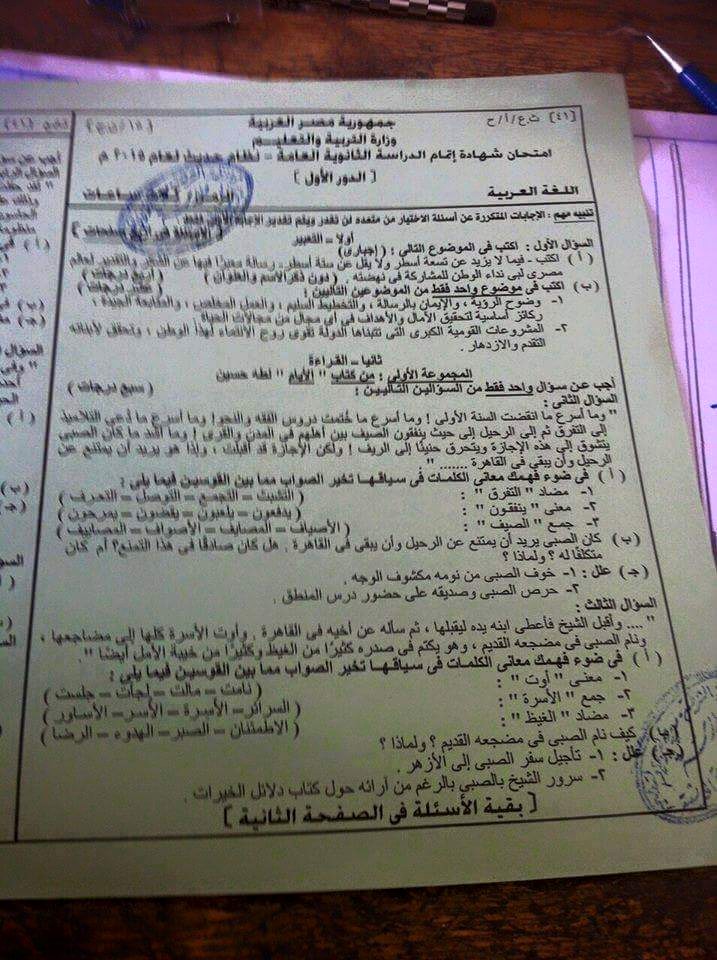 [٤١] ث.ع/أ/ح
جمهورية مصر العربية
وزارة التربية والتعليم
امتحان شهادة إتمام الدراسة الثانوية العامة – نظام حديث لعام ٢٠١٥ م
[ الدور الأول ]
اللغة العربية
تنبيه مهم : الإجابات المتكررة عن أسئلة الاختيار من متعدد لن تقدر ويتم تقدير الإجابة الأولى فقط
أولا – التعبير
السؤال الأول : اكتب فى الموضوع التالى : ( إجبارى )
( أ ) اكتب – فيما لا يزيد عن تسعة أسطر ولا يقل عن ستة أسطر – رسالة معبرًا فيها عن الشكر والتقدير لعالم
مصرى لبى نداء الوطن للمشاركة فى نهضته ( دون ذكر الاسم والعنوان ) ( أربع درجات )
(ب) اكتب فى موضوع واحد فقط من الموضوعين التاليين : ( عشر درجات )
١- وضوح الرؤية ، والإيمان بالرسالة ، والتخطيط السليم ، والعمل المخلص ، والمتابعة الجيدة ،
ركائز أساسية لتحقيق الآمال والأهداف فى أى مجال من مجالات الحياة
٢- المشروعات القومية الكبرى التى تتبناها الدولة تقوى روح الانتماء لهذا الوطن ، وتحقق لأبنائه
التقدم والازدهار .
ثانيا – القراءة
المجموعة الأولى : من كتاب " الأيام " لطه حسين
أجب عن سؤال واحد فقط من السؤالين التاليين : ( سبع درجات )
السؤال الثانى :
" وما أسرع ما انقضت السنة الأولى ! وما أسرع ما ختمت دروس الفقه والنحو! وما أسرع ما دُعى التلاميذ
إلى التفرق ثم إلى الرحيل إلى حيث ينفقون الصيف بين أهلهم فى المدن والقرى ! وما أشد ما كان الصبى
يتشوق إلى هذه الإجازة ويتحرق حنينًا إلى الريف ! ولكن الإجازة قد أقبلت ، وإذا هو يريد أن يمتنع عن
الرحيل وأن يبقى فى القاهرة ........ "
( أ ) فى ضوء فهمك معانى الكلمات فى سياقها تخير الصواب مما بين القوسين فيما يلى :
١- مضاد " التفرق " : ( التشبث – التجمع – التوصل – التعرف )
٢- معنى " ينفقون " : ( يدفعون – يلعبون – يقضون – يمرحون )
٣- جمع " الصيف " : ( الأصياف – المصايف – الأصواف – المصاييف )
(ب) كان الصبى يريد أن يمتنع عن الرحيل وأن يبقى فى القاهرة . هل كان صادقًا فى هذا التمنع؟ أم كان
متكلفًا له ؟ ولماذا ؟
(جـ) علل : ١- خوف الصبى من نومه مكشوف الوجه .
٢- حرص الصبى وصديقه على حضور درس المنطق .
السؤال الثالث :
" .... وأقبل الشيخ فأعطى ابنه يده ليقبلها ، ثم سأله عن أخيه فى القاهرة . وأوت الأسرة كلها إلى مضاجعها ،
ونام الصبى فى مضجعه القديم ، وهو يكتم فى صدره كثيرًا من الغيظ وكثيرًا من خيبة الأمل أيضًا " .
( أ ) فى ضوء فهمك معانى الكلمات فى سياقها تخير الصواب مما بين القوسين فيما يلى :
١- معنى " أوت " : ( نامت – مالت – لجأت – جلست )
٢- جمع " الأسرة " : ( السرائر – الأسرة – الأسر – الأساور )
٣- مضاد " الغيظ " : ( الاطمئنان – الصبر – الهدوء – الرضا )
(ب) كيف نام الصبى فى مضجعه القديم ؟ ولماذا ؟
(جـ) علل : ١- تأجيل سفر الصبى إلى الأزهر .
٢- سرور الشيخ بالصبى بالرغم من آرائه حول كتاب دلائل الخيرات .
[ بقية الأسئلة فى الصفحة الثانية ]